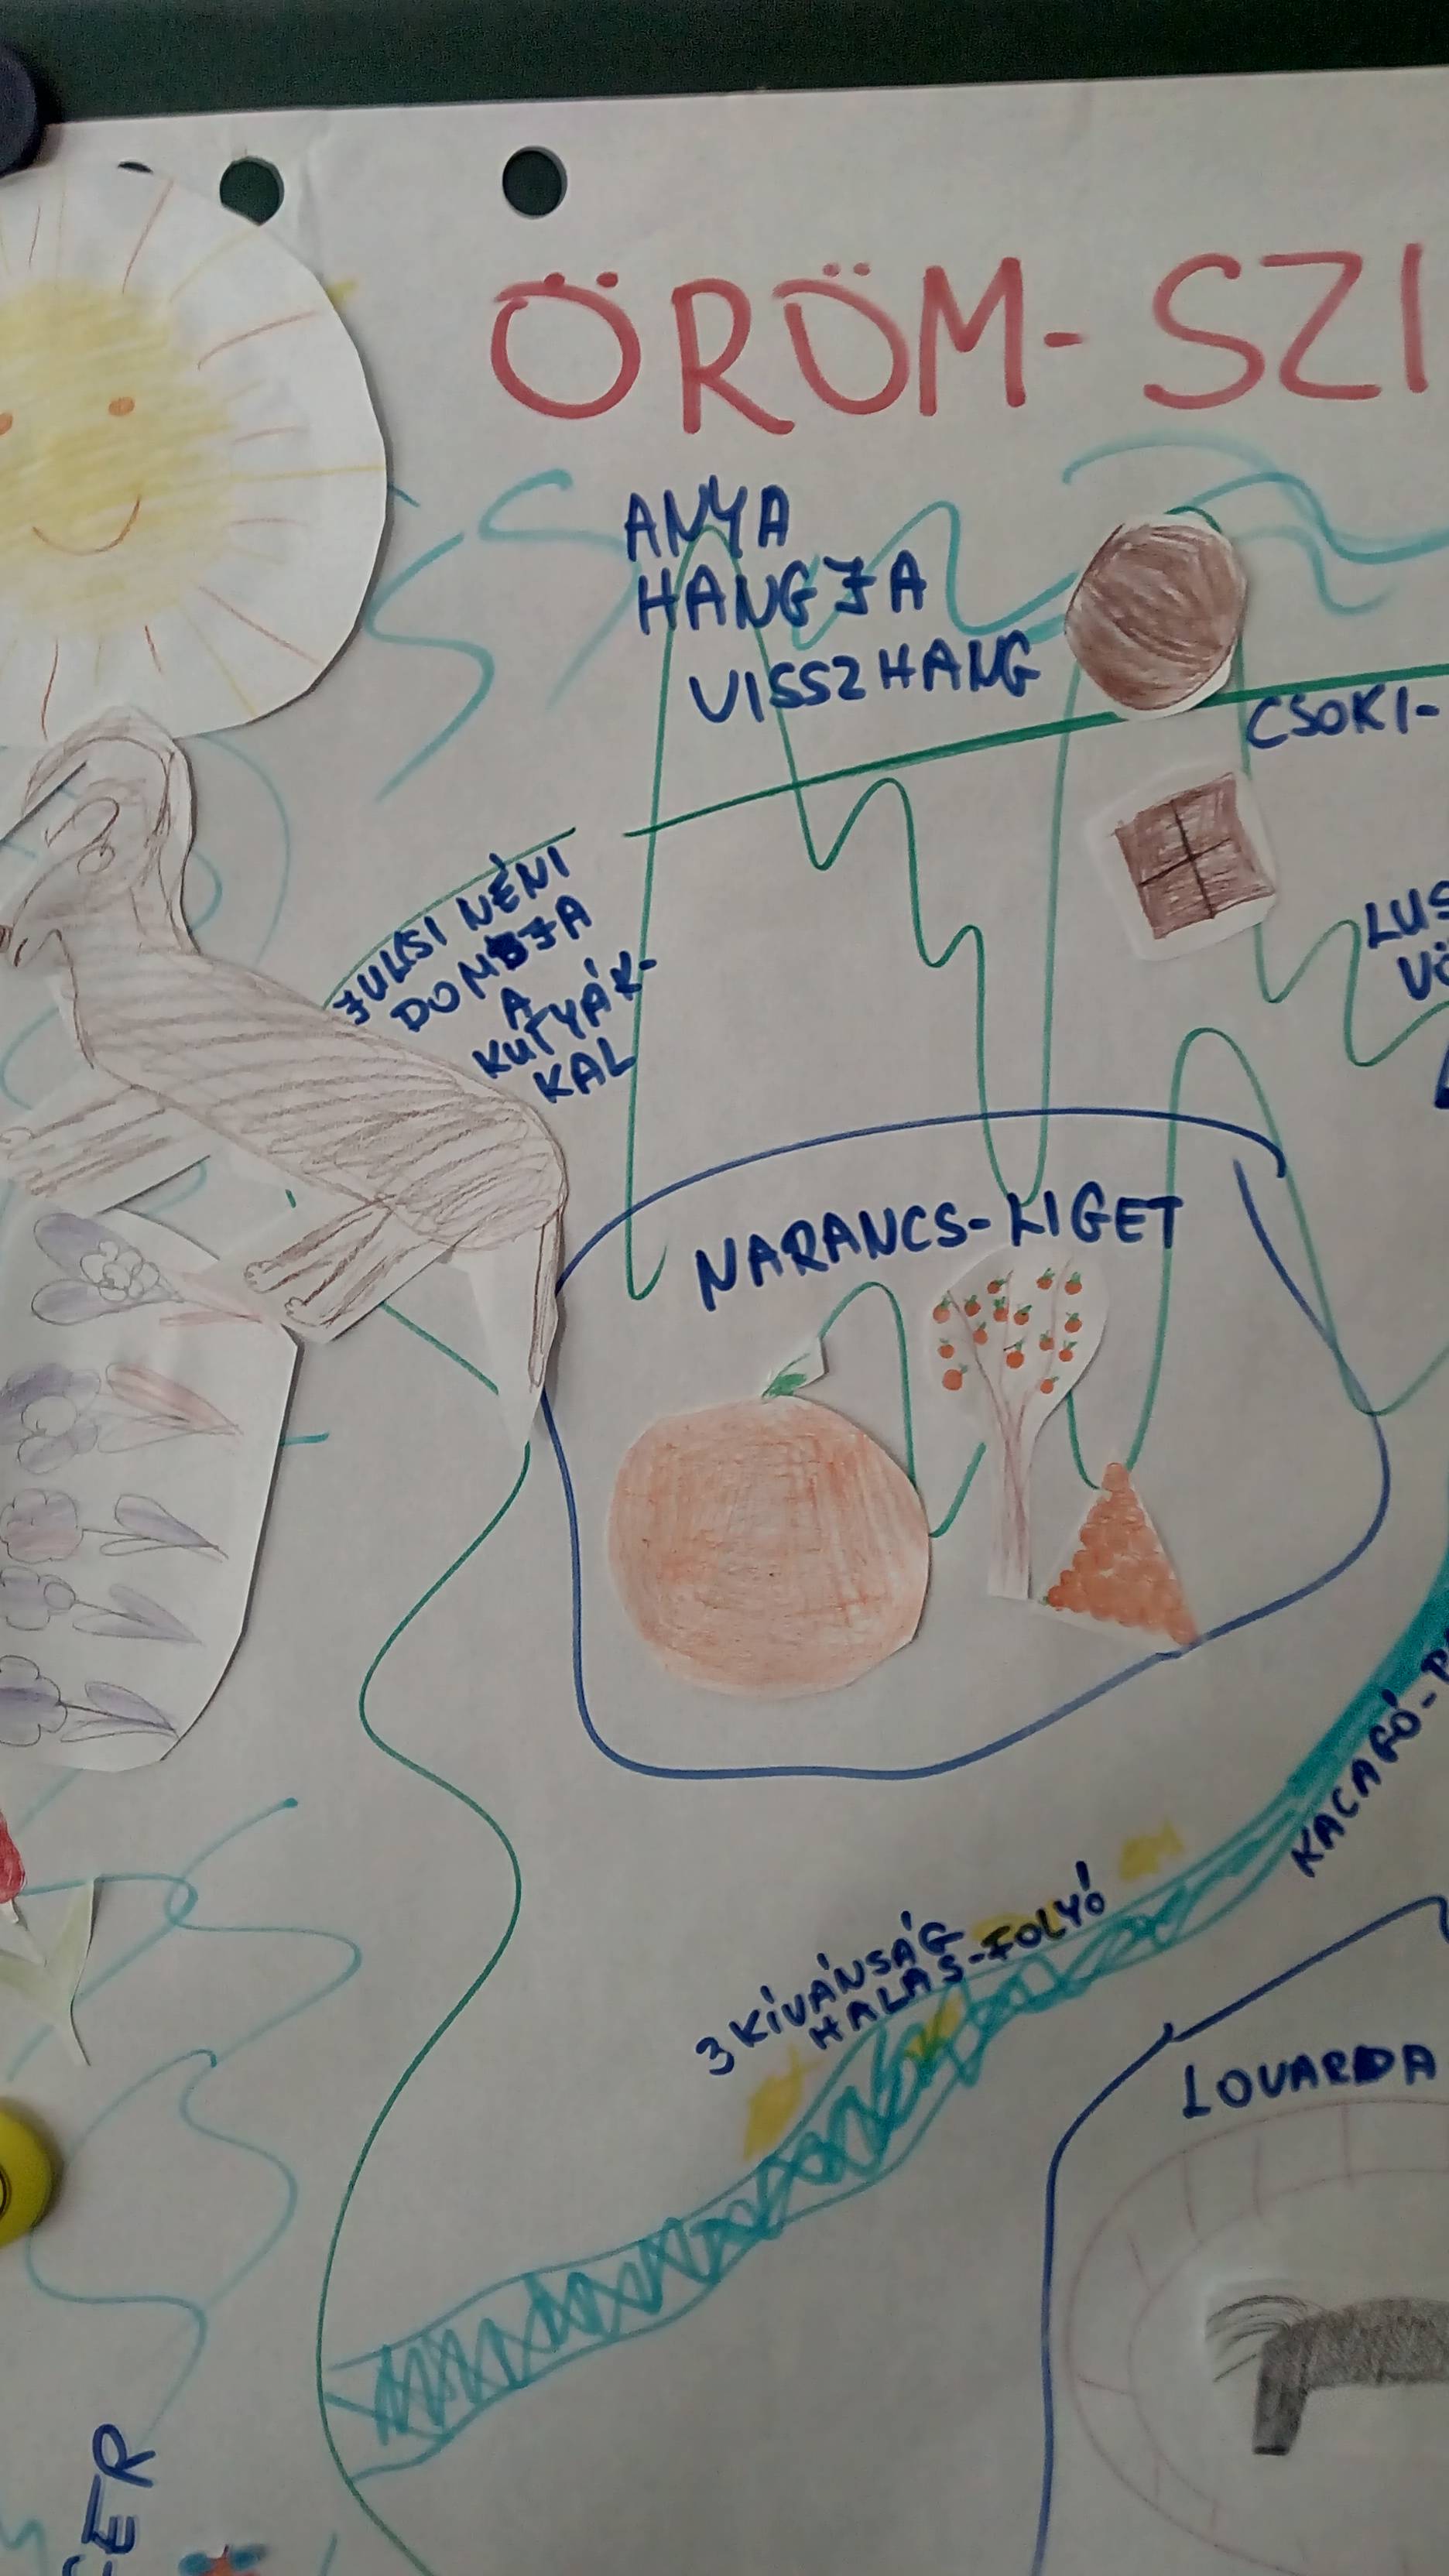 ÖRÖM-SZI
ANYA
HANGJA
VISSZHANG
CSOKI-
JULCSI NÉNI
DOMBJA
A
KUTYÁK-
KAL
LUS
VÖ
NARANCS-LIGET
KACAGÓ-P
3 KÍVÁNSÁG
HALAS-FOLYÓ
LOVARDA
ER